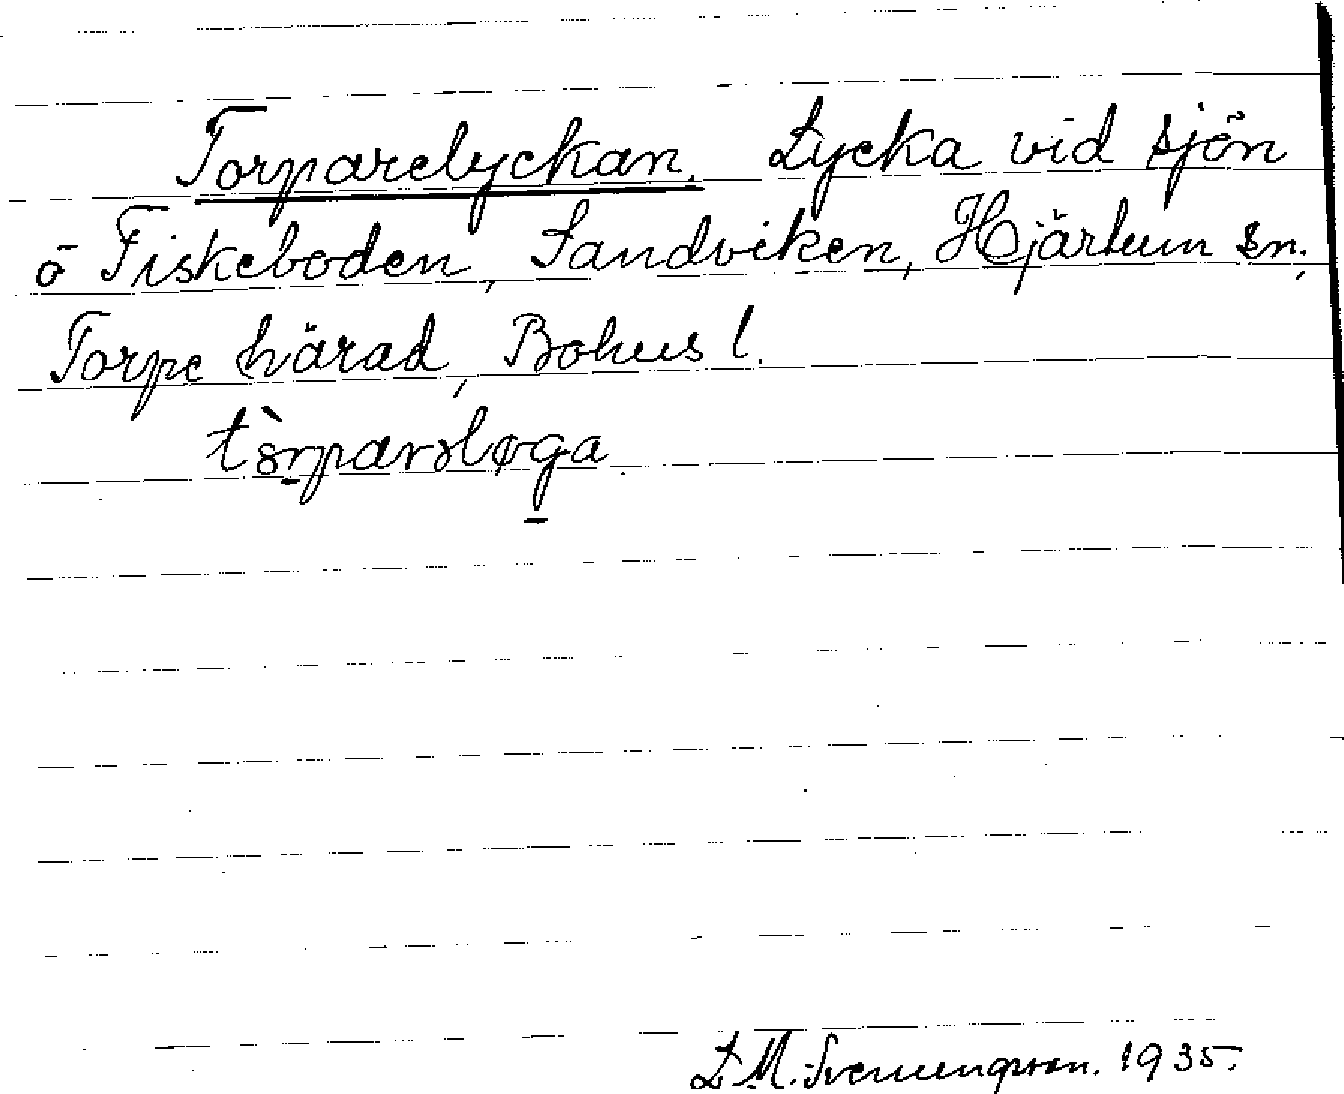 Torparelyckan. Lycka vid sjön
ö Fiskeboden, Sandviken, Hjärtum sn,
Torpe härad, Bohus l.
L M. Svenungsson. 1935.